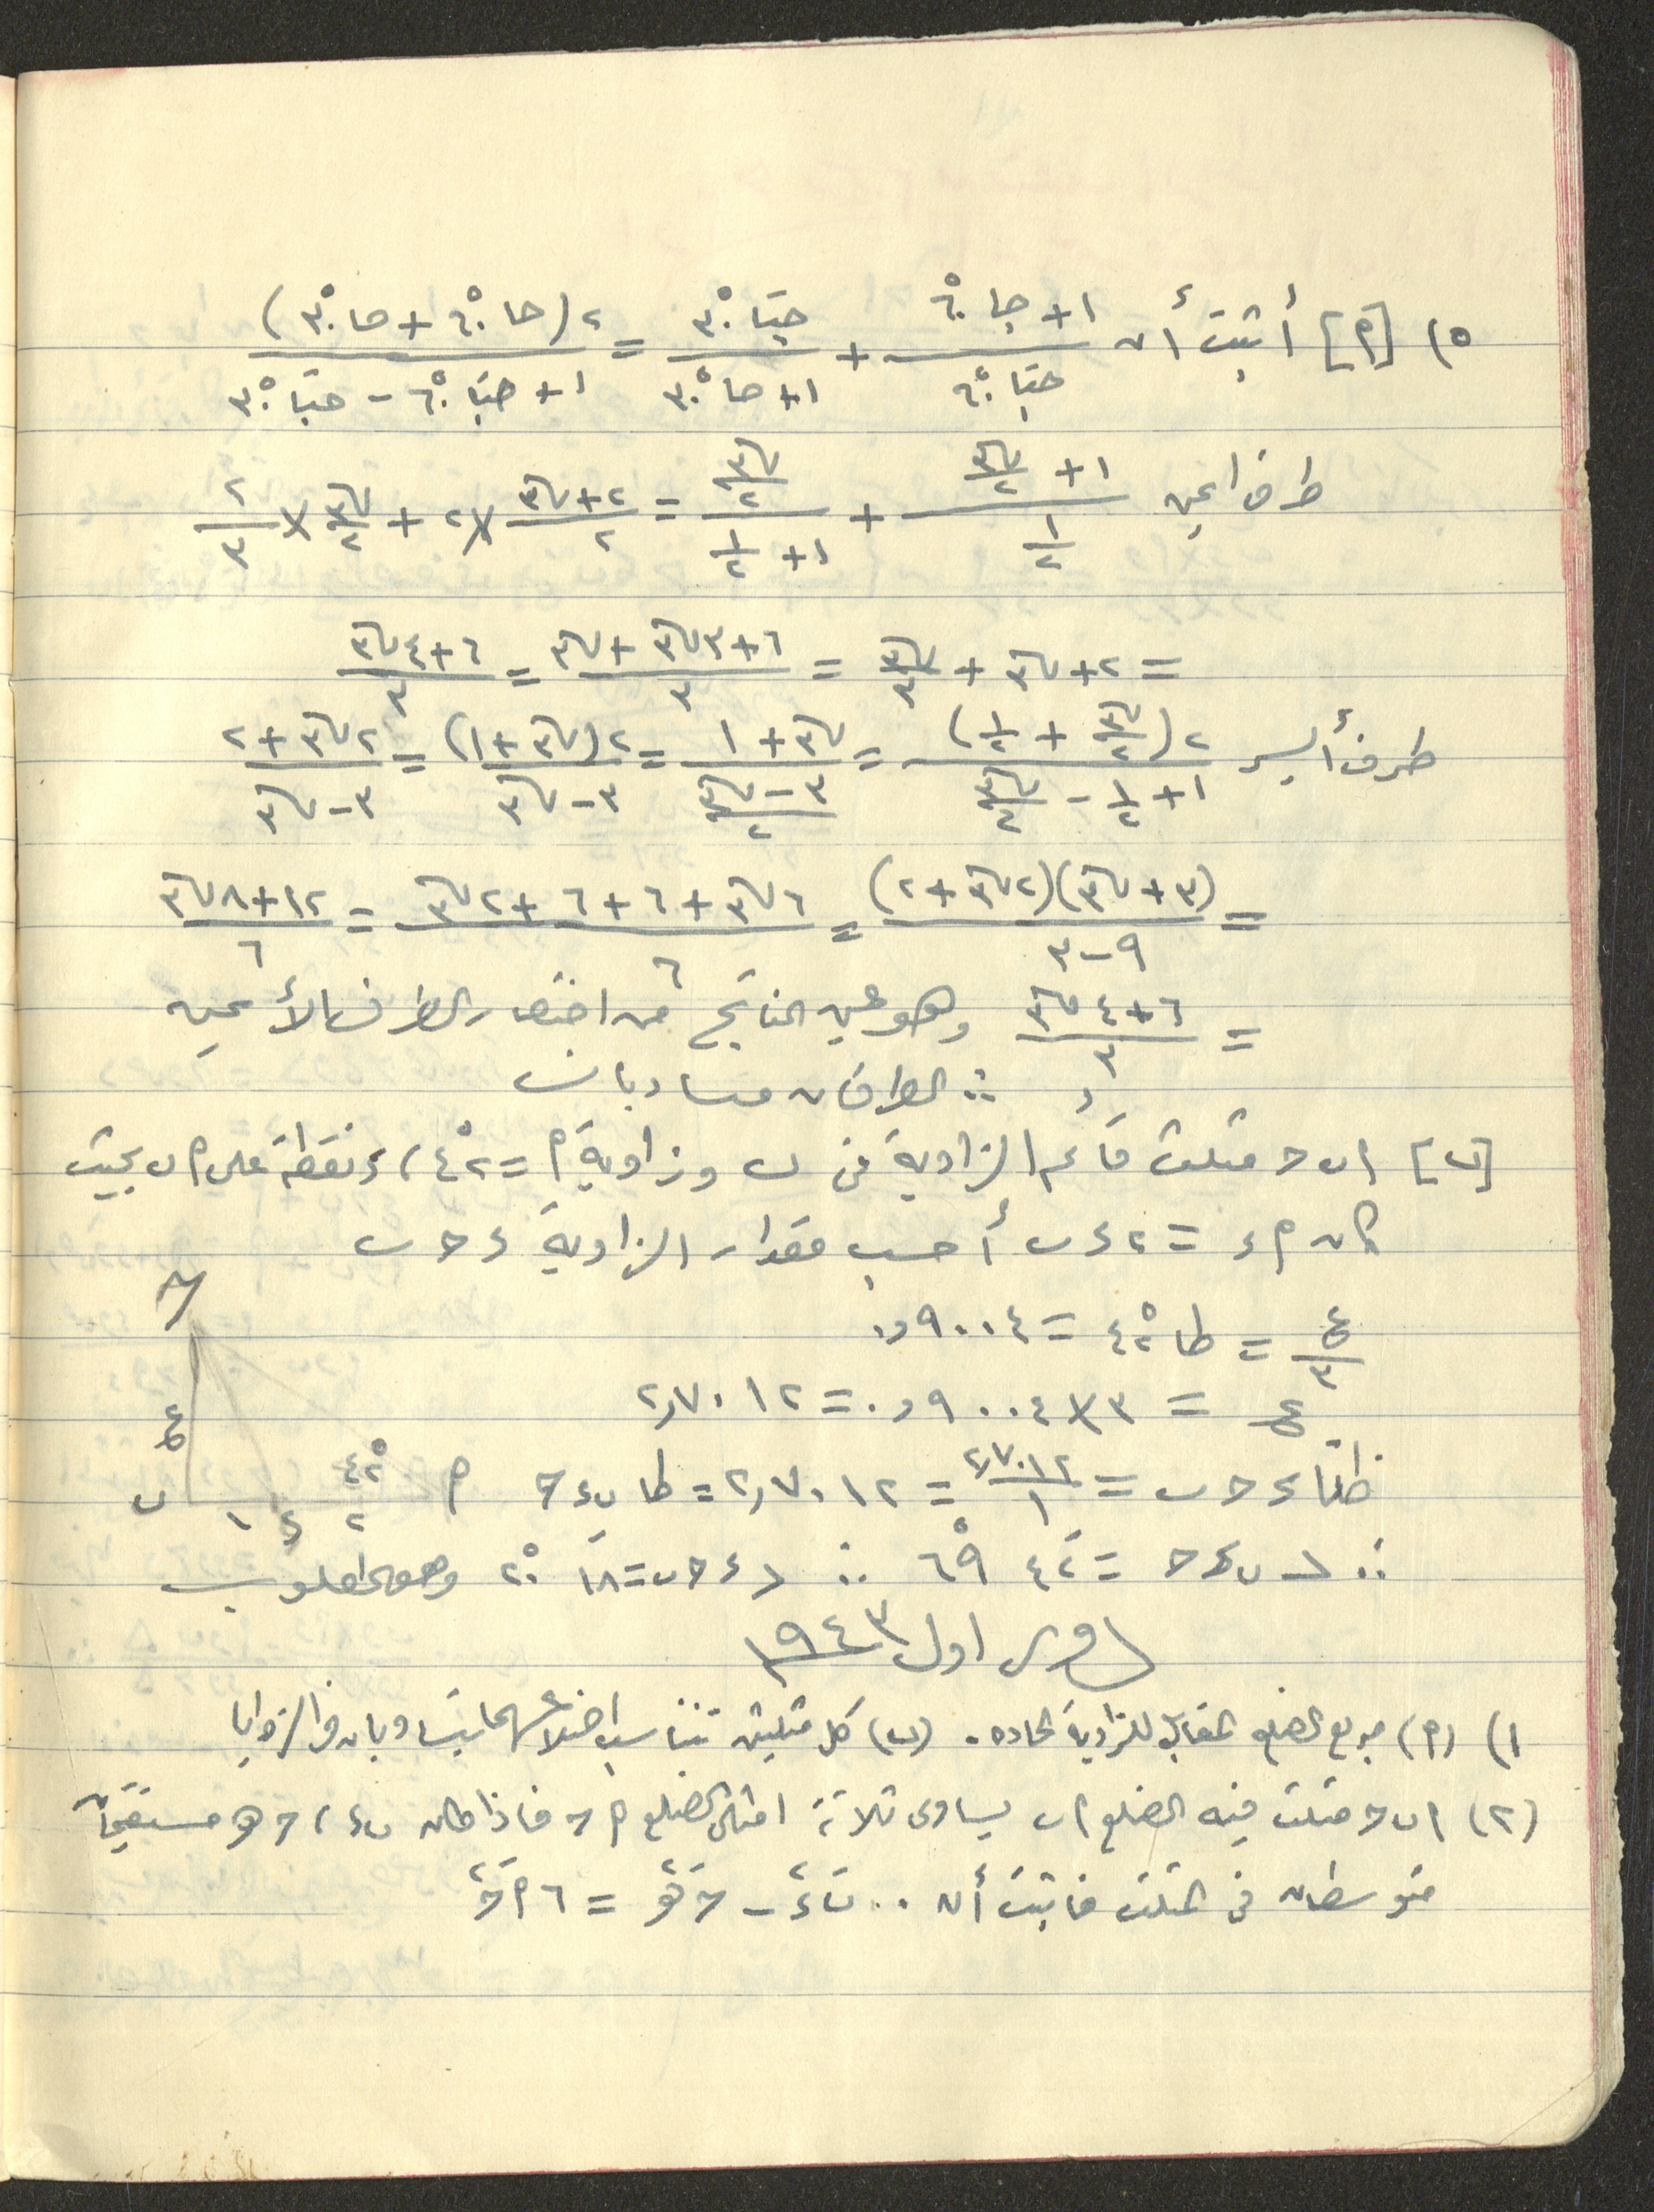 ٥) [م] أثبت أن (١ + جا ٦٠°)/(حتا ٦٠°) + (حتا ٣٠°)/(١ + حا ٣٠°) = ٢(حا ٦٠° + حا ٣٠°)/(١ + حتا ٦٠° − حتا ٣٠°)
طرف ايمن (١ + √٣/٢)/(١/٢) + (√٣/٢)/(١ + ١/٢) = (٢ + √٣)/٢ × ٢ + √٣/٢ × ٢/٣
= ٢ + √٣ + √٣/٣ = (٦ + ٣√٣ + √٣)/٣ = (٦ + ٤√٣)/٣
طرف أيسر ٢(√٣/٢ + ١/٢)/(١ + ١/٢ − √٣/٢) = (√٣ + ١)/((٣ − √٣)/٢) = ٢(√٣ + ١)/(٣ − √٣) = (٢√٣ + ٢)/(٣ − √٣)
= (٣ + √٣)(٢√٣ + ٢)/(٩ − ٣) = (٦√٣ + ٦ + ٦ + ٢√٣)/٦ = (١٢ + ٨√٣)/٦
= (٦ + ٤√٣)/٣ وهو عين الناتج من اختصار الطرف الأيمن
∴ الطرفان متساويان
[ب] ا ب ح مثلث قائم الزاوية في ب وزاوية م = ٤٢° ، ء نقطة على م ب بحيث
كان م ء = ٢ ء ب أحسب مقدار الزاوية ء ح ب
ع/٣ = طا ٤٢° = ٠٫٩٠٠٤
ع = ٣ × ٠٫٩٠٠٤ = ٢٫٧٠١٢
ظتا ء ح ب = ٢٫٧٠١٢/١ = ٢٫٧٠١٢ = طا ب ء ح
∴ > ب ء ح = ٤٢َ ٦٩° ∴ > ء ح ب = ١٨َ ٢٠° وهو المطلوب
ح
ع
ب ١ ء ٢ ٤٢° م
اول ١٩٤٣
١) (م) مربع الضلع المقابل للزاوية الحاده . (ب) كل مثلثين تتناسب اضلاعهما يتساويان في الزوايا
(٢) ا ب ح مثلث فيه الضلع ا ب يساوى ثلاثة امثال الضلع م ح فاذا كان ب ء ، ح هـ مستقيمان
متوسطان في المثلث فاثبت أن .. ب ء٢ − ح هـ٢ = ٦ م ح٢